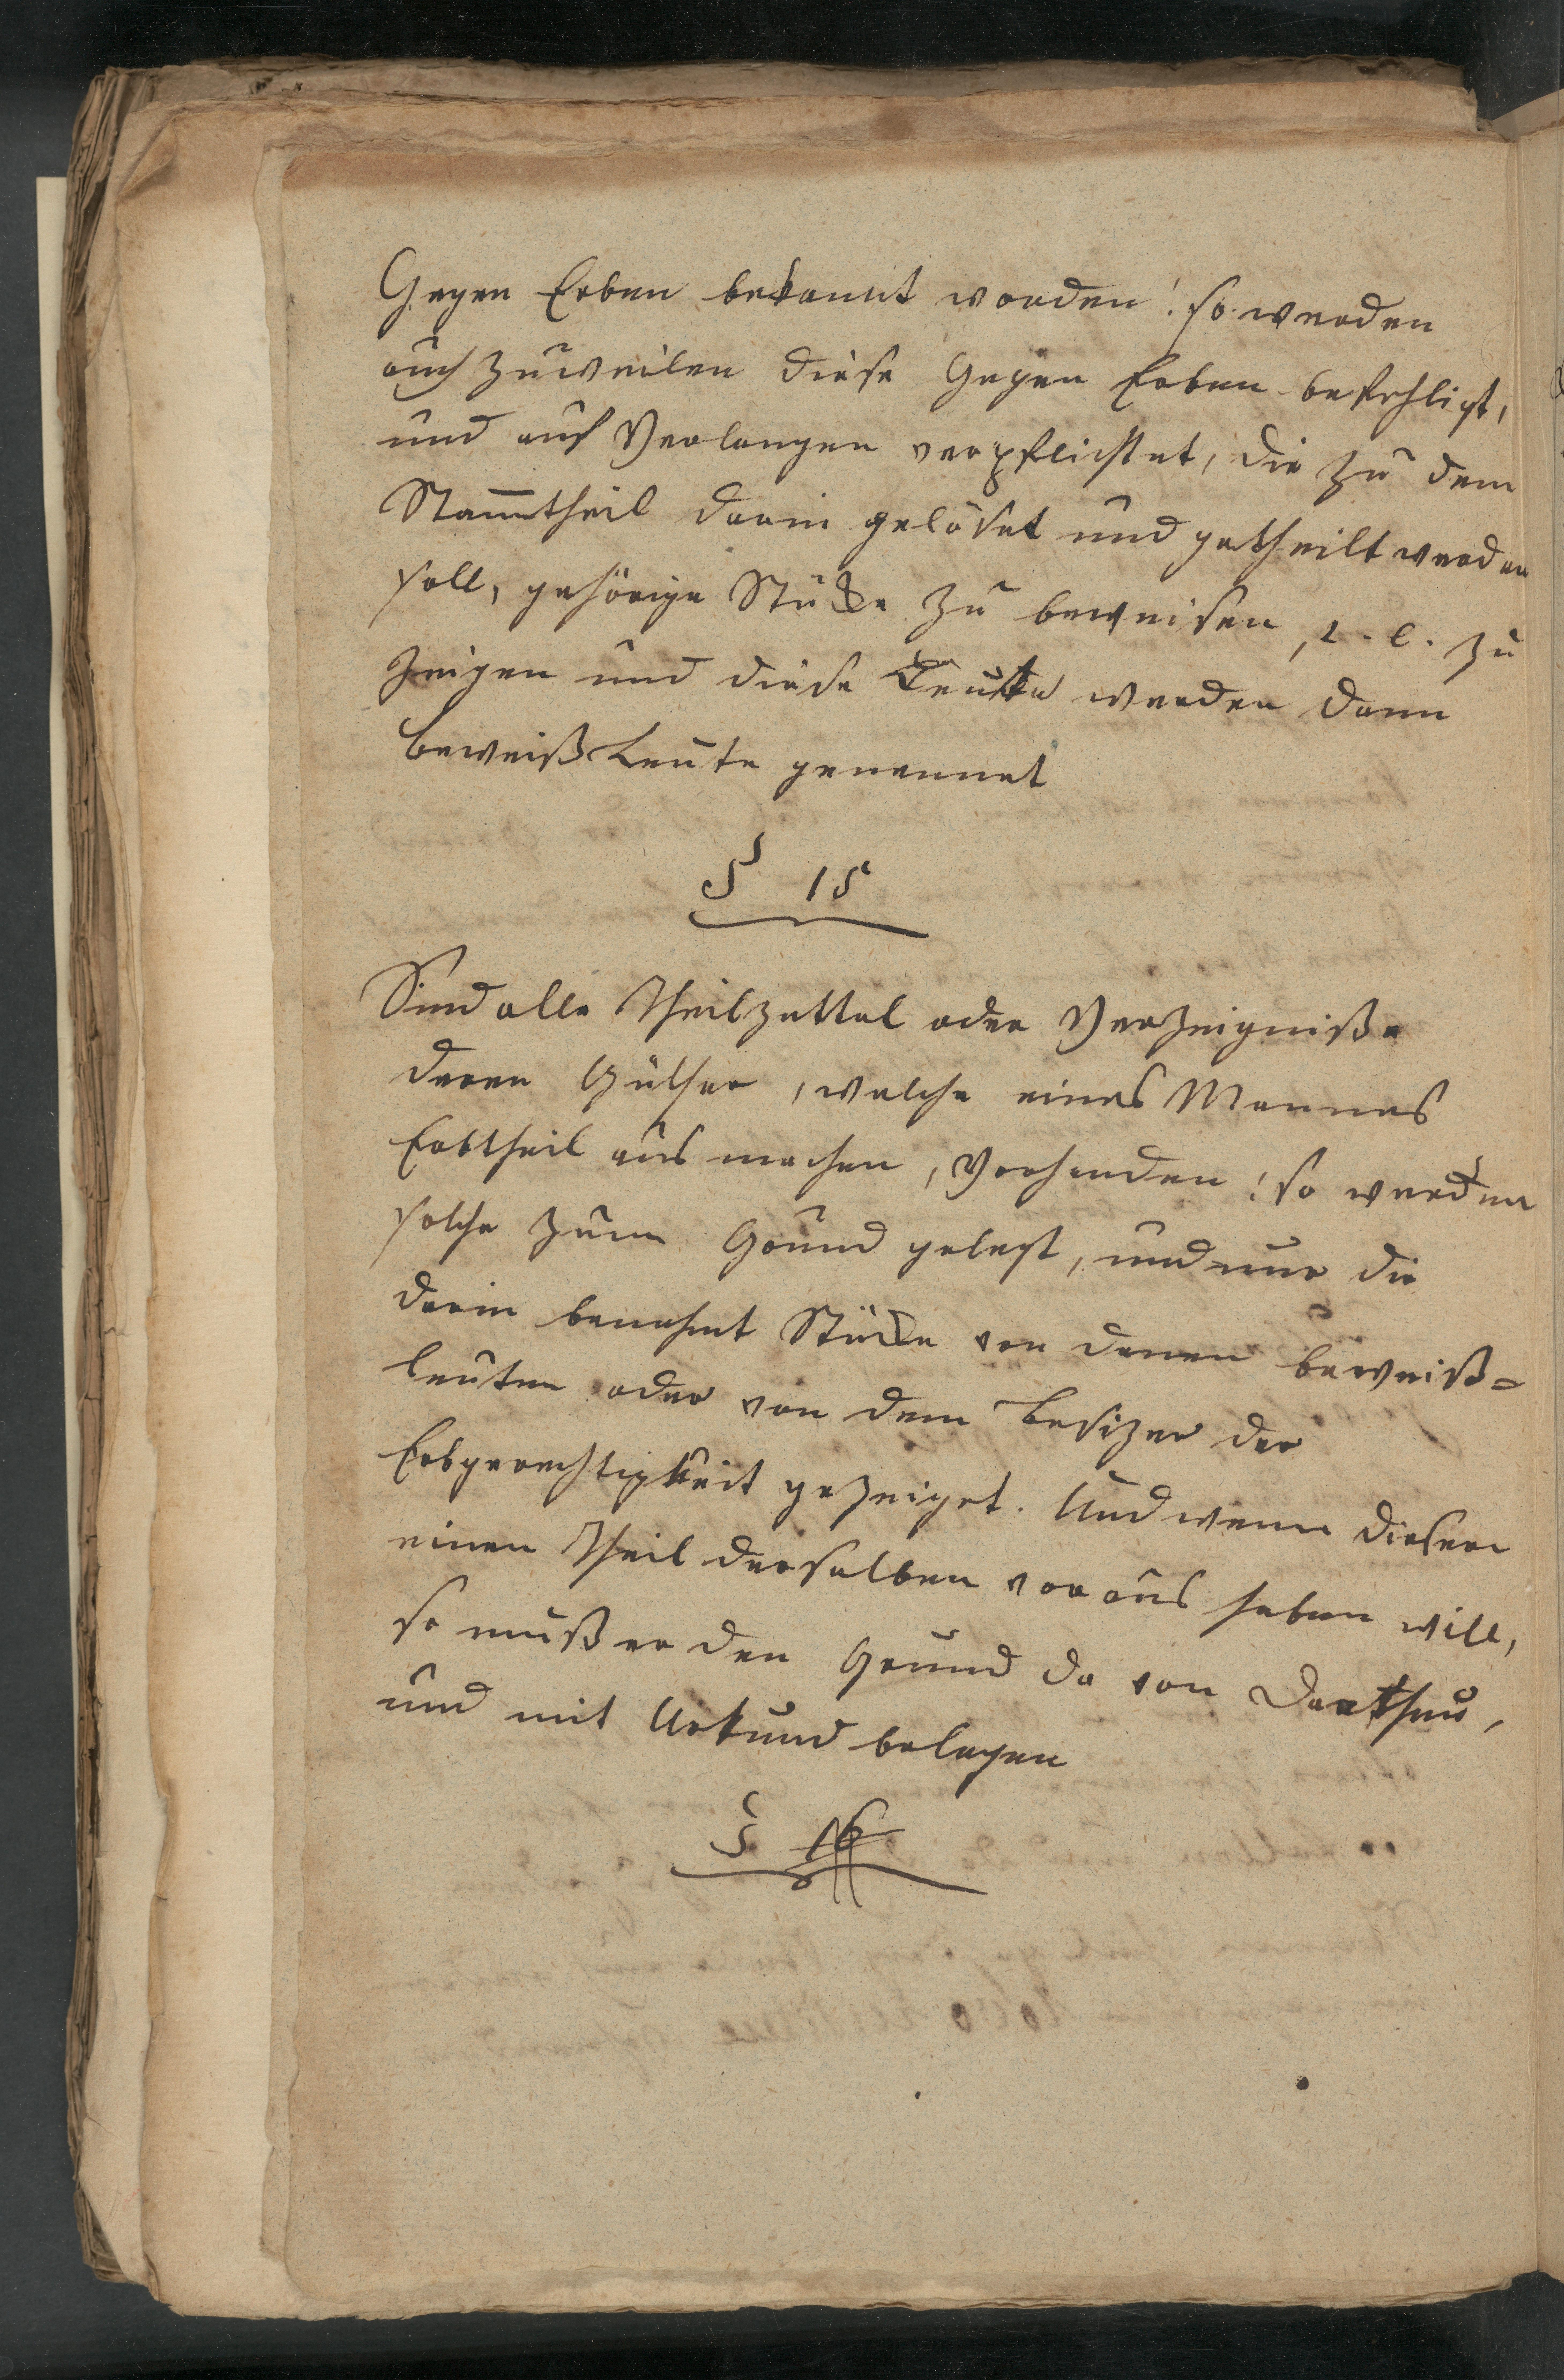 Gegen Erben bekannt worden: so werden
auch zuweilen diese Gegen Erben befehligt,
und auf Verlangen verpflichtet, die zu dem
Stammtheil darin gelöset und getheilt werden
soll, gehörige Stücke zu beweisen, i. e. zu
zeigen und diese Leute werden dann
beweiß Leute genennet
§ 15
Sind alle Theilzettel oder Verzeigniße
deren Güther, welche eines Mannes
Erbtheil aus machen, Vorhanden: so werden
solche zum Grund gelegt, und nur die
darin benahmt Stücke von denen beweiß-
leuten oder von dem Besizer der
Erbgerechtigkeit gezeiget. Und wenn dieser
einen Theil derselben voraus haben will,
so muß er den Grund da von Darthun,
und mit Urkund belegen
§ 16